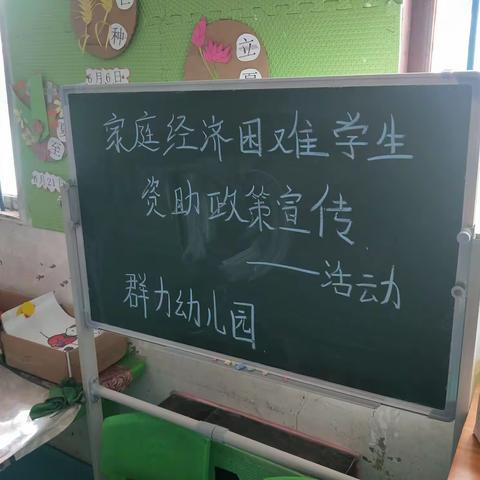 种
立夏
6月6日
6月21日
家庭经济困难学生
资助政策宣传
——活动
群力幼儿园